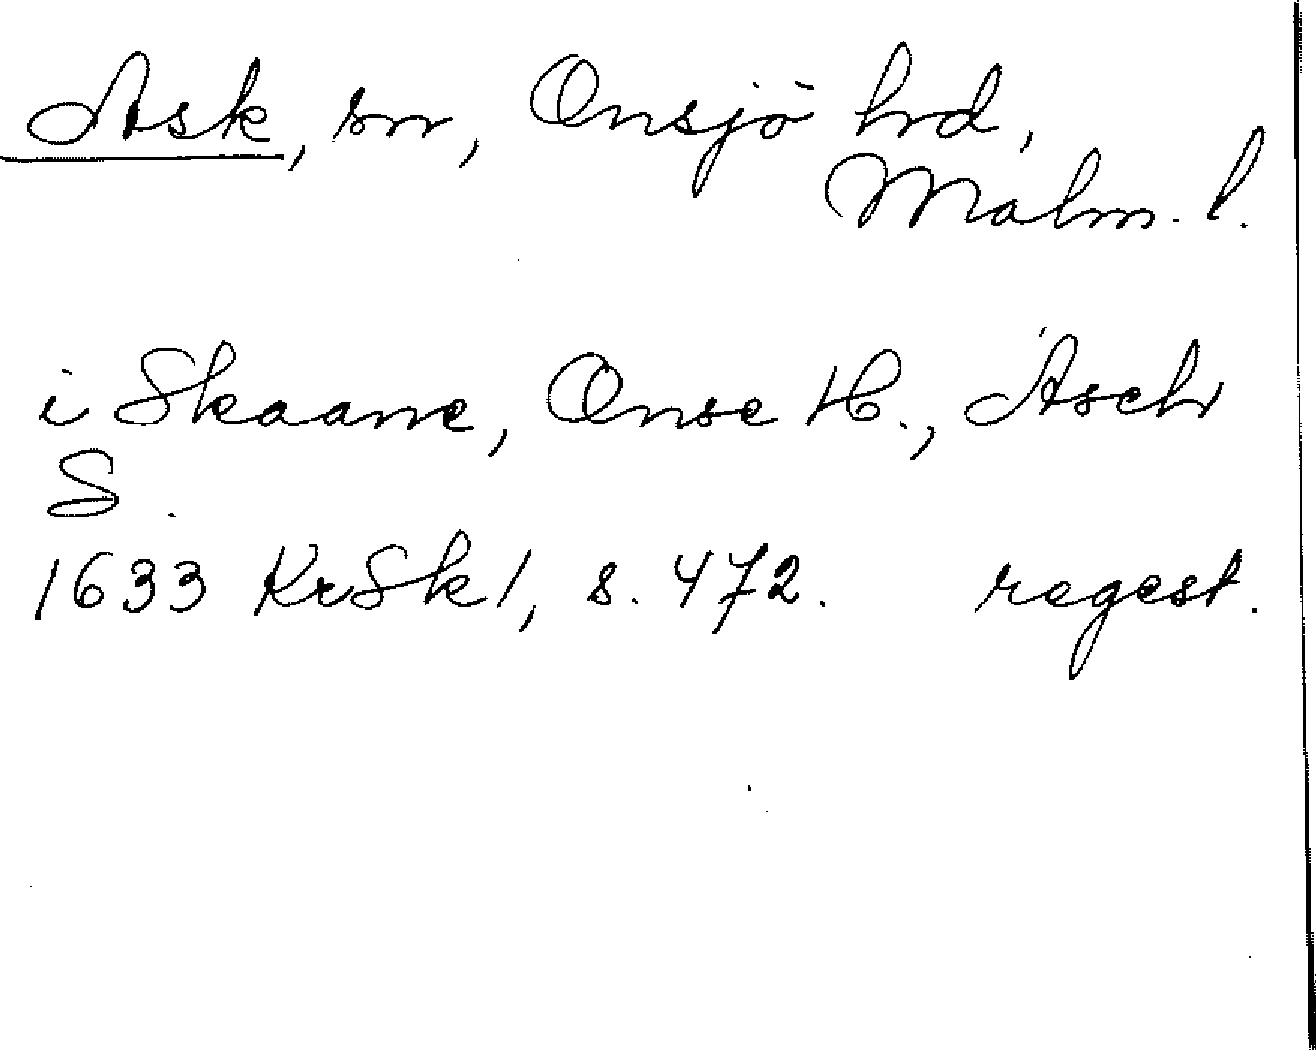 Ask, sn, Onsjö hrd,
Malm. l.
i Skaane, Onse H., Asch
S.
1633 KrSk1, s. 472. regest.